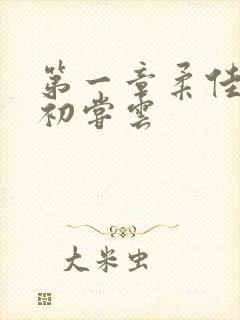 第一章柔佳
初尝云
大米虫